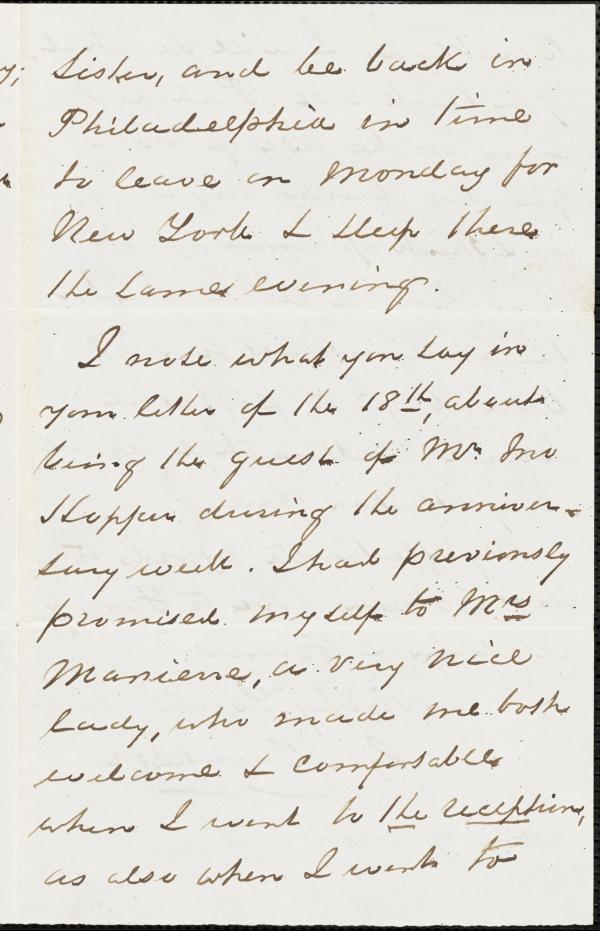 sister, and be back in
Philadelphia in time
to leave on Monday for
New York & sleep there
the same evening.
I note what you say in
your letter of the 18th, about
being the guest of Mr. Jno
Hopper during the anniver-
sary week. I had previously
promised myself to Mrs
Manierre, a very nice
lady, who made me both
welcome & comfortable
when I went to the reception,
as also when I went to